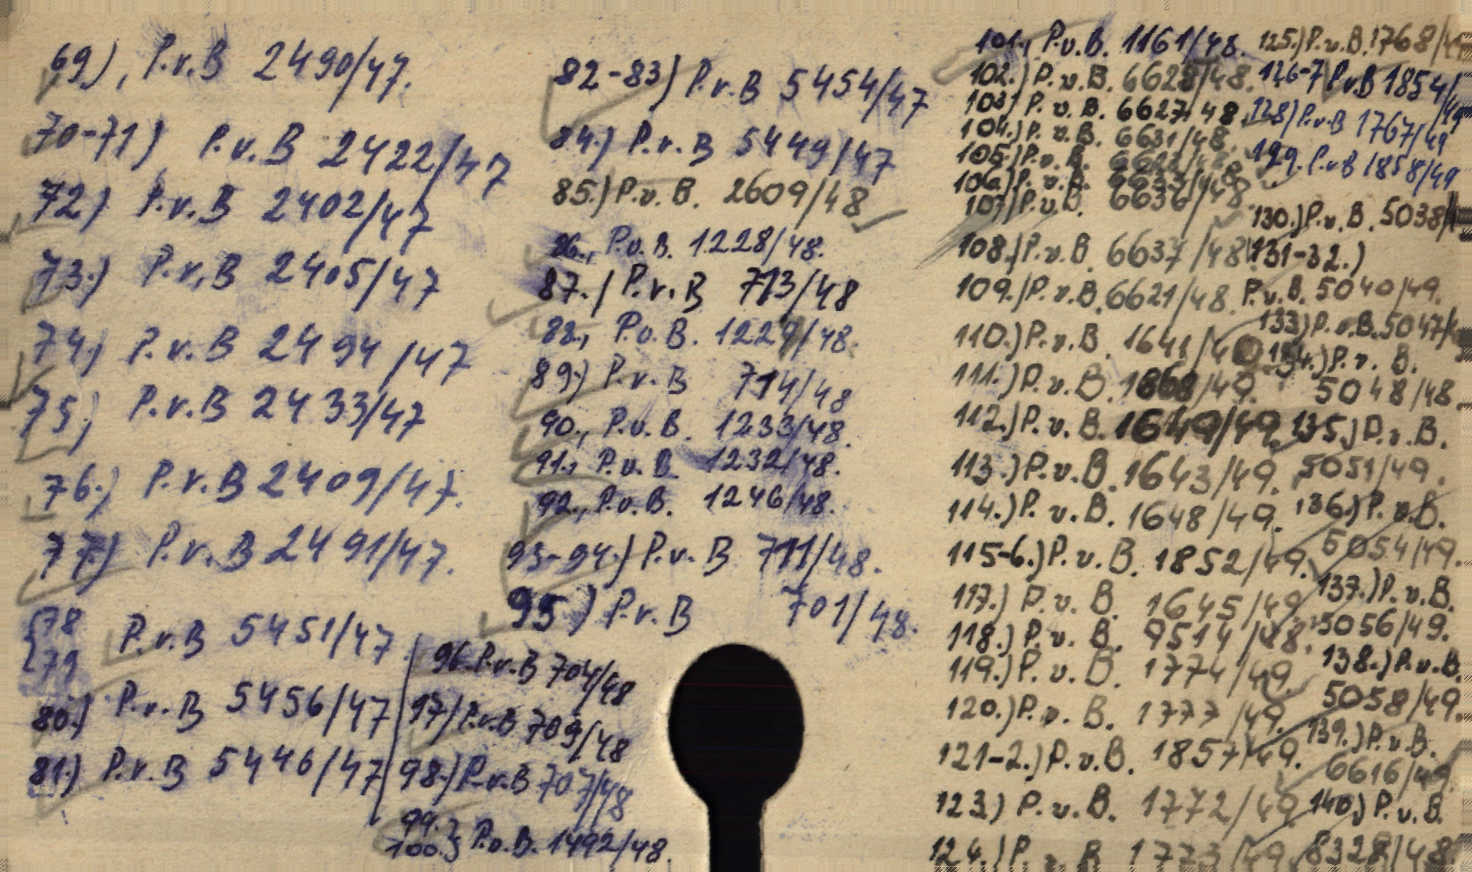 69), P.v.B 2490/47.
70-71) P.v.B 2422/47
72) P.v.B 2402/47
73.) P.v.B 2405/47
74) P.v.B 2494/47
75) P.v.B 2433/47
76.) P.v.B 2409/47.
77) P.v.B 2491/47.
78
79 P.v.B 5451/47
80.) P.v.B 5456/47
81.) P.v.B 5446/47
82-83) P.v.B 5454/47
84.) P.v.B 5449/47
85.) P.v.B. 2609/48
86., P.v.B. 1228/48.
87.) P.v.B 713/48
88., P.v.B. 1229/48.
89.) P.v.B 714/48
90., P.v.B. 1233/48.
91., P.v.B. 1232/48.
92., P.v.B. 1246/48.
93-94.) P.v.B 711/48.
95) P.v.B 701/48.
96. P.v.B 704/48
97) P.v.B 709/48
98.) P.v.B 707/48
99.
100. P.v.B. 1492/48.
101., P.v.B. 1161/48.
102.) P.v.B. 6628/48.
103) P.v.B. 6627/48.
104.) P.v.B. 6631/48.
105.) P.v.B.
106.) P.v.B.
107) P.v.B. 6636/48.
108.) P.v.B. 6637/48
109.) P.v.B. 6621/48.
110.) P.v.B. 1641/49
111.) P.v.B. /49.
112.) P.v.B. 1649/49.
113.) P.v.B. 1643/49.
114.) P.v.B. 1648/49.
115-6.) P.v.B. 1852/49.
117.) P.v.B. 1645/49
118.) P.v.B. 9514/48.
119.) P.v.B. 1774/49
120.) P.v.B. 1777/49.
121-2.) P.v.B. 1857/49.
123.) P.v.B. 1772/49.
124.) P.v.B 1773/49.
125.) P.v.B. 1768/
126-7) P.v.B 1854/49
128) P.v.B 1767/49
129. P.v.B 1858/49
130.) P.v.B. 5038/
131-32.)
P.v.B. 5040/49.
133) P.v.B. 5047/
134.) P.v.B.
5048/48.
135.) P.v.B.
5051/49.
136.) P.v.B.
5054/49.
137.) P.v.B.
5056/49.
138.) P.v.B.
5058/49.
139.) P.v.B.
6616/49.
140.) P.v.B.
8328/48.